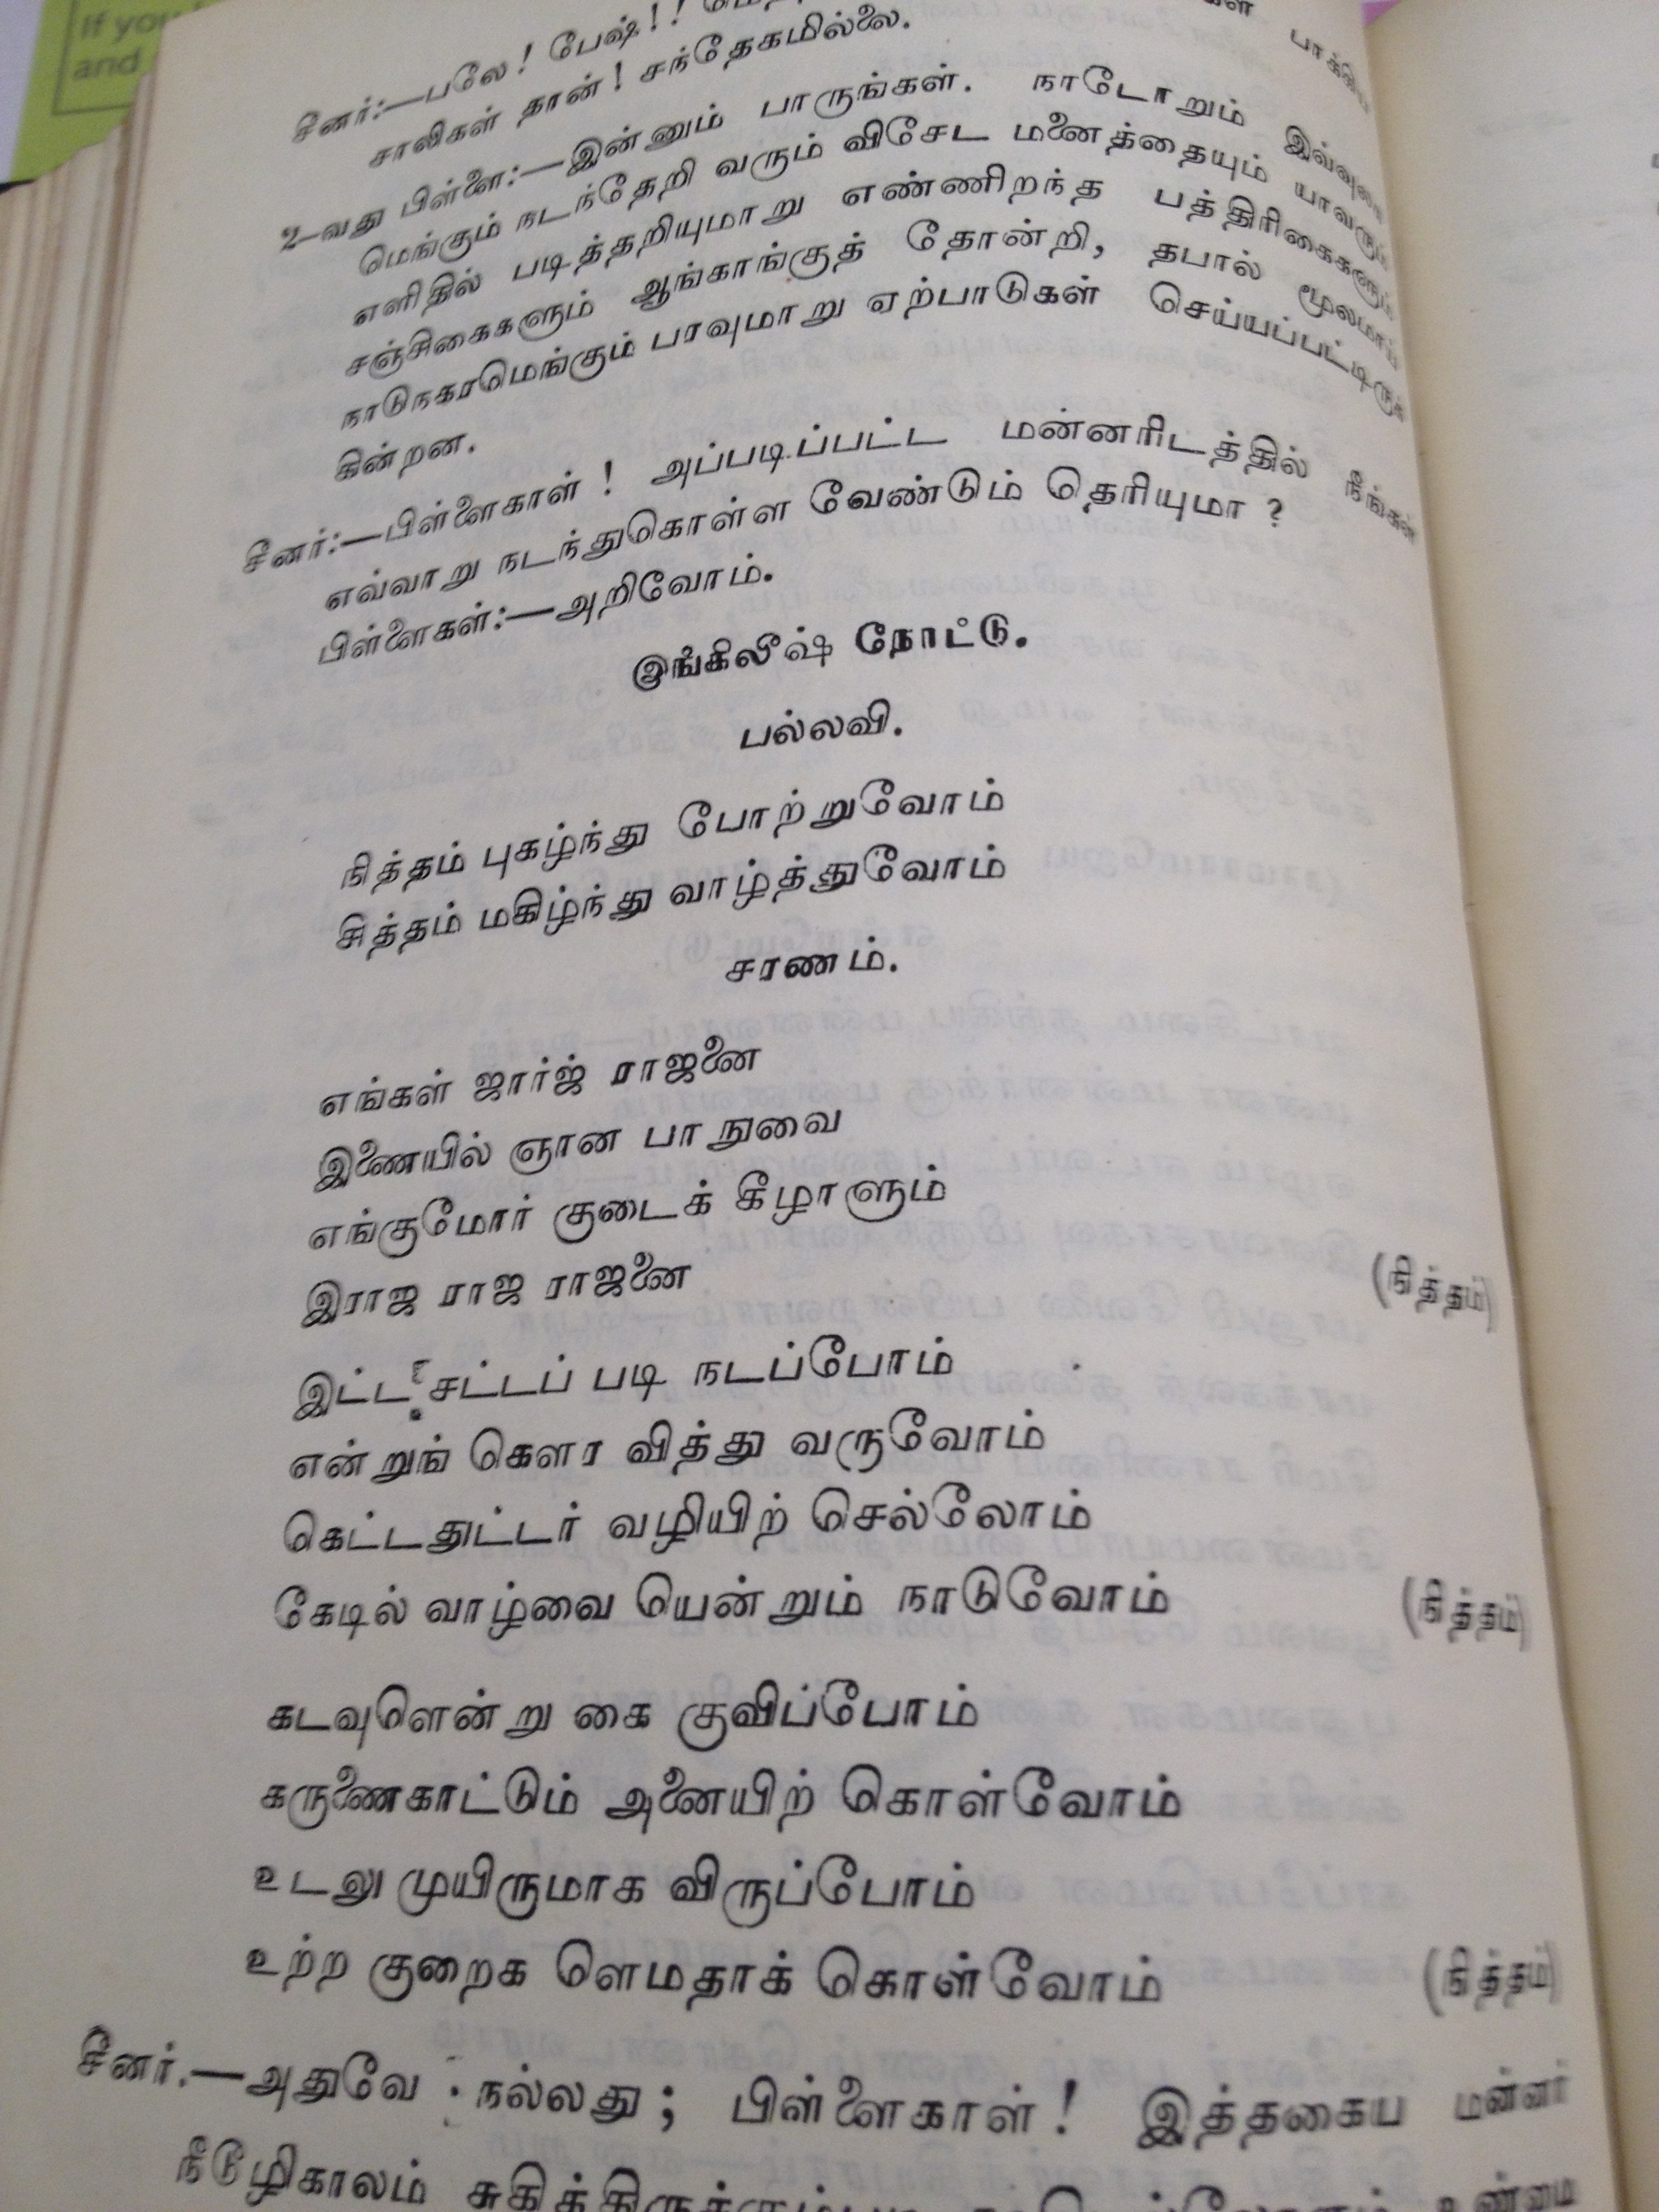 If you
and
சீனர்:—பலே! பேஷ்!! பாக்கிய
சாலிகள் தான்! சந்தேகமில்லை.
2-வது பிள்ளை:—இன்னும் பாருங்கள். நாடோறும் இவ்வுல
மெங்கும் நடந்தேறி வரும் விசேட மனைத்தையும் யாவரும்
எளிதில் படித்தறியுமாறு எண்ணிறந்த பத்திரிகைகளும்
சஞ்சிகைகளும் ஆங்காங்குத் தோன்றி, தபால் மூலமாய்
நாடுநகரமெங்கும் பரவுமாறு ஏற்பாடுகள் செய்யப்பட்டிருக்
கின்றன.
சீனர்:—பிள்ளைகாள்! அப்படிப்பட்ட மன்னரிடத்தில் நீங்கள்
எவ்வாறு நடந்துகொள்ள வேண்டும் தெரியுமா?
பிள்ளைகள்:—அறிவோம்.
இங்கிலீஷ் நோட்டு.
பல்லவி.
நித்தம் புகழ்ந்து போற்றுவோம்
சித்தம் மகிழ்ந்து வாழ்த்துவோம்
சரணம்.
எங்கள் ஜார்ஜ் ராஜனை
இணையில் ஞான பாநுவை
எங்குமோர் குடைக் கீழாளும்
இராஜ ராஜ ராஜனை (நித்தம்)
இட்ட சட்டப் படி நடப்போம்
என்றுங் கௌர வித்து வருவோம்
கெட்டதுட்டர் வழியிற் செல்லோம்
கேடில் வாழ்வை யென்றும் நாடுவோம் (நித்தம்)
கடவுளென்று கை குவிப்போம்
கருணைகாட்டும் அனையிற் கொள்வோம்
உடலு முயிருமாக விருப்போம்
உற்ற குறைக ளெமதாக் கொள்வோம் (நித்தம்)
சீனர்.—அதுவே நல்லது; பிள்ளைகாள்! இத்தகைய மன்னர்
நீடூழிகாலம் உண்மை